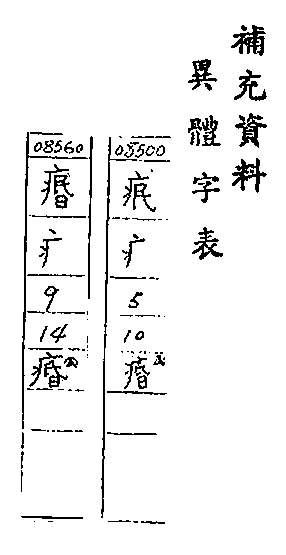 補充資料
異體字表
08500
疒
5
10
痻
08560
疒
9
14